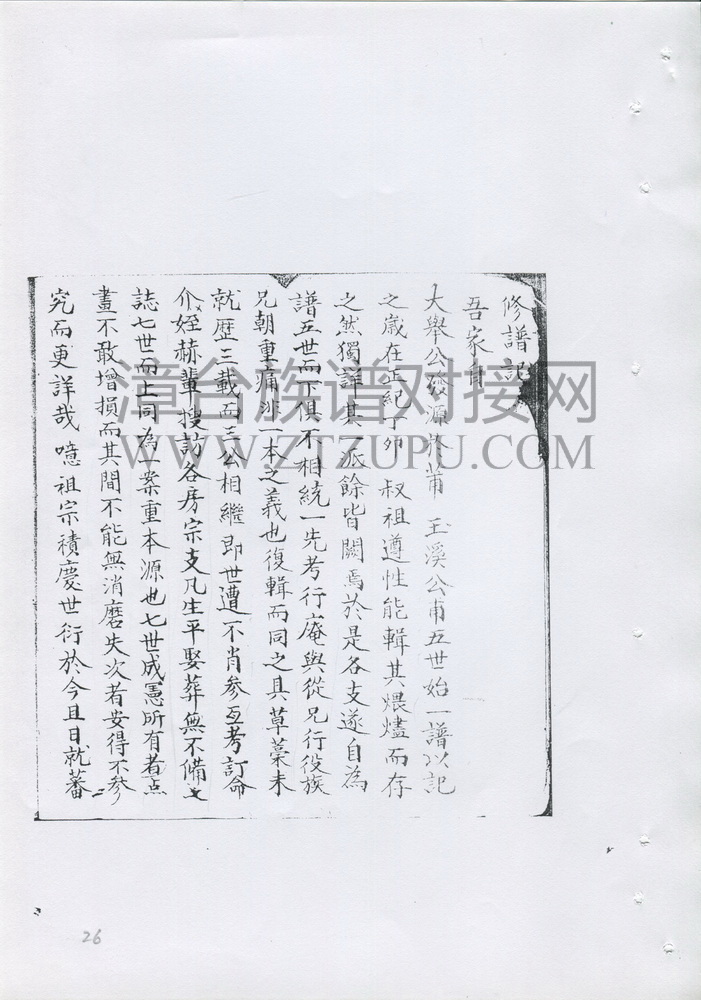 修譜記
吾家自
大舉公發源於莆 玉溪公甫五世始一譜以記
之歲在正紀丁卯 叔祖遵性能輯其煨燼而存
之然獨詳其派餘皆闕焉於是各支遂自為
譜五世而下俱不相統一先考行庵與從兄行役族
兄朝重痛非一本之義也復輯而同之具草藁未
就歷三載而三公相繼即世遭不肖參互考訂命
介姪赫輩搜訪各房宗支凡生平娶葬無不備之
誌七世而上同為一案重本源也七世成憲所有者点
畫不敢增損而其間不能無消磨失次者安得不參
究而更詳哉噫祖宗積慶世衍於今且日就蕃
漳台族谱对接网
WWW.ZTZUPU.COM
26